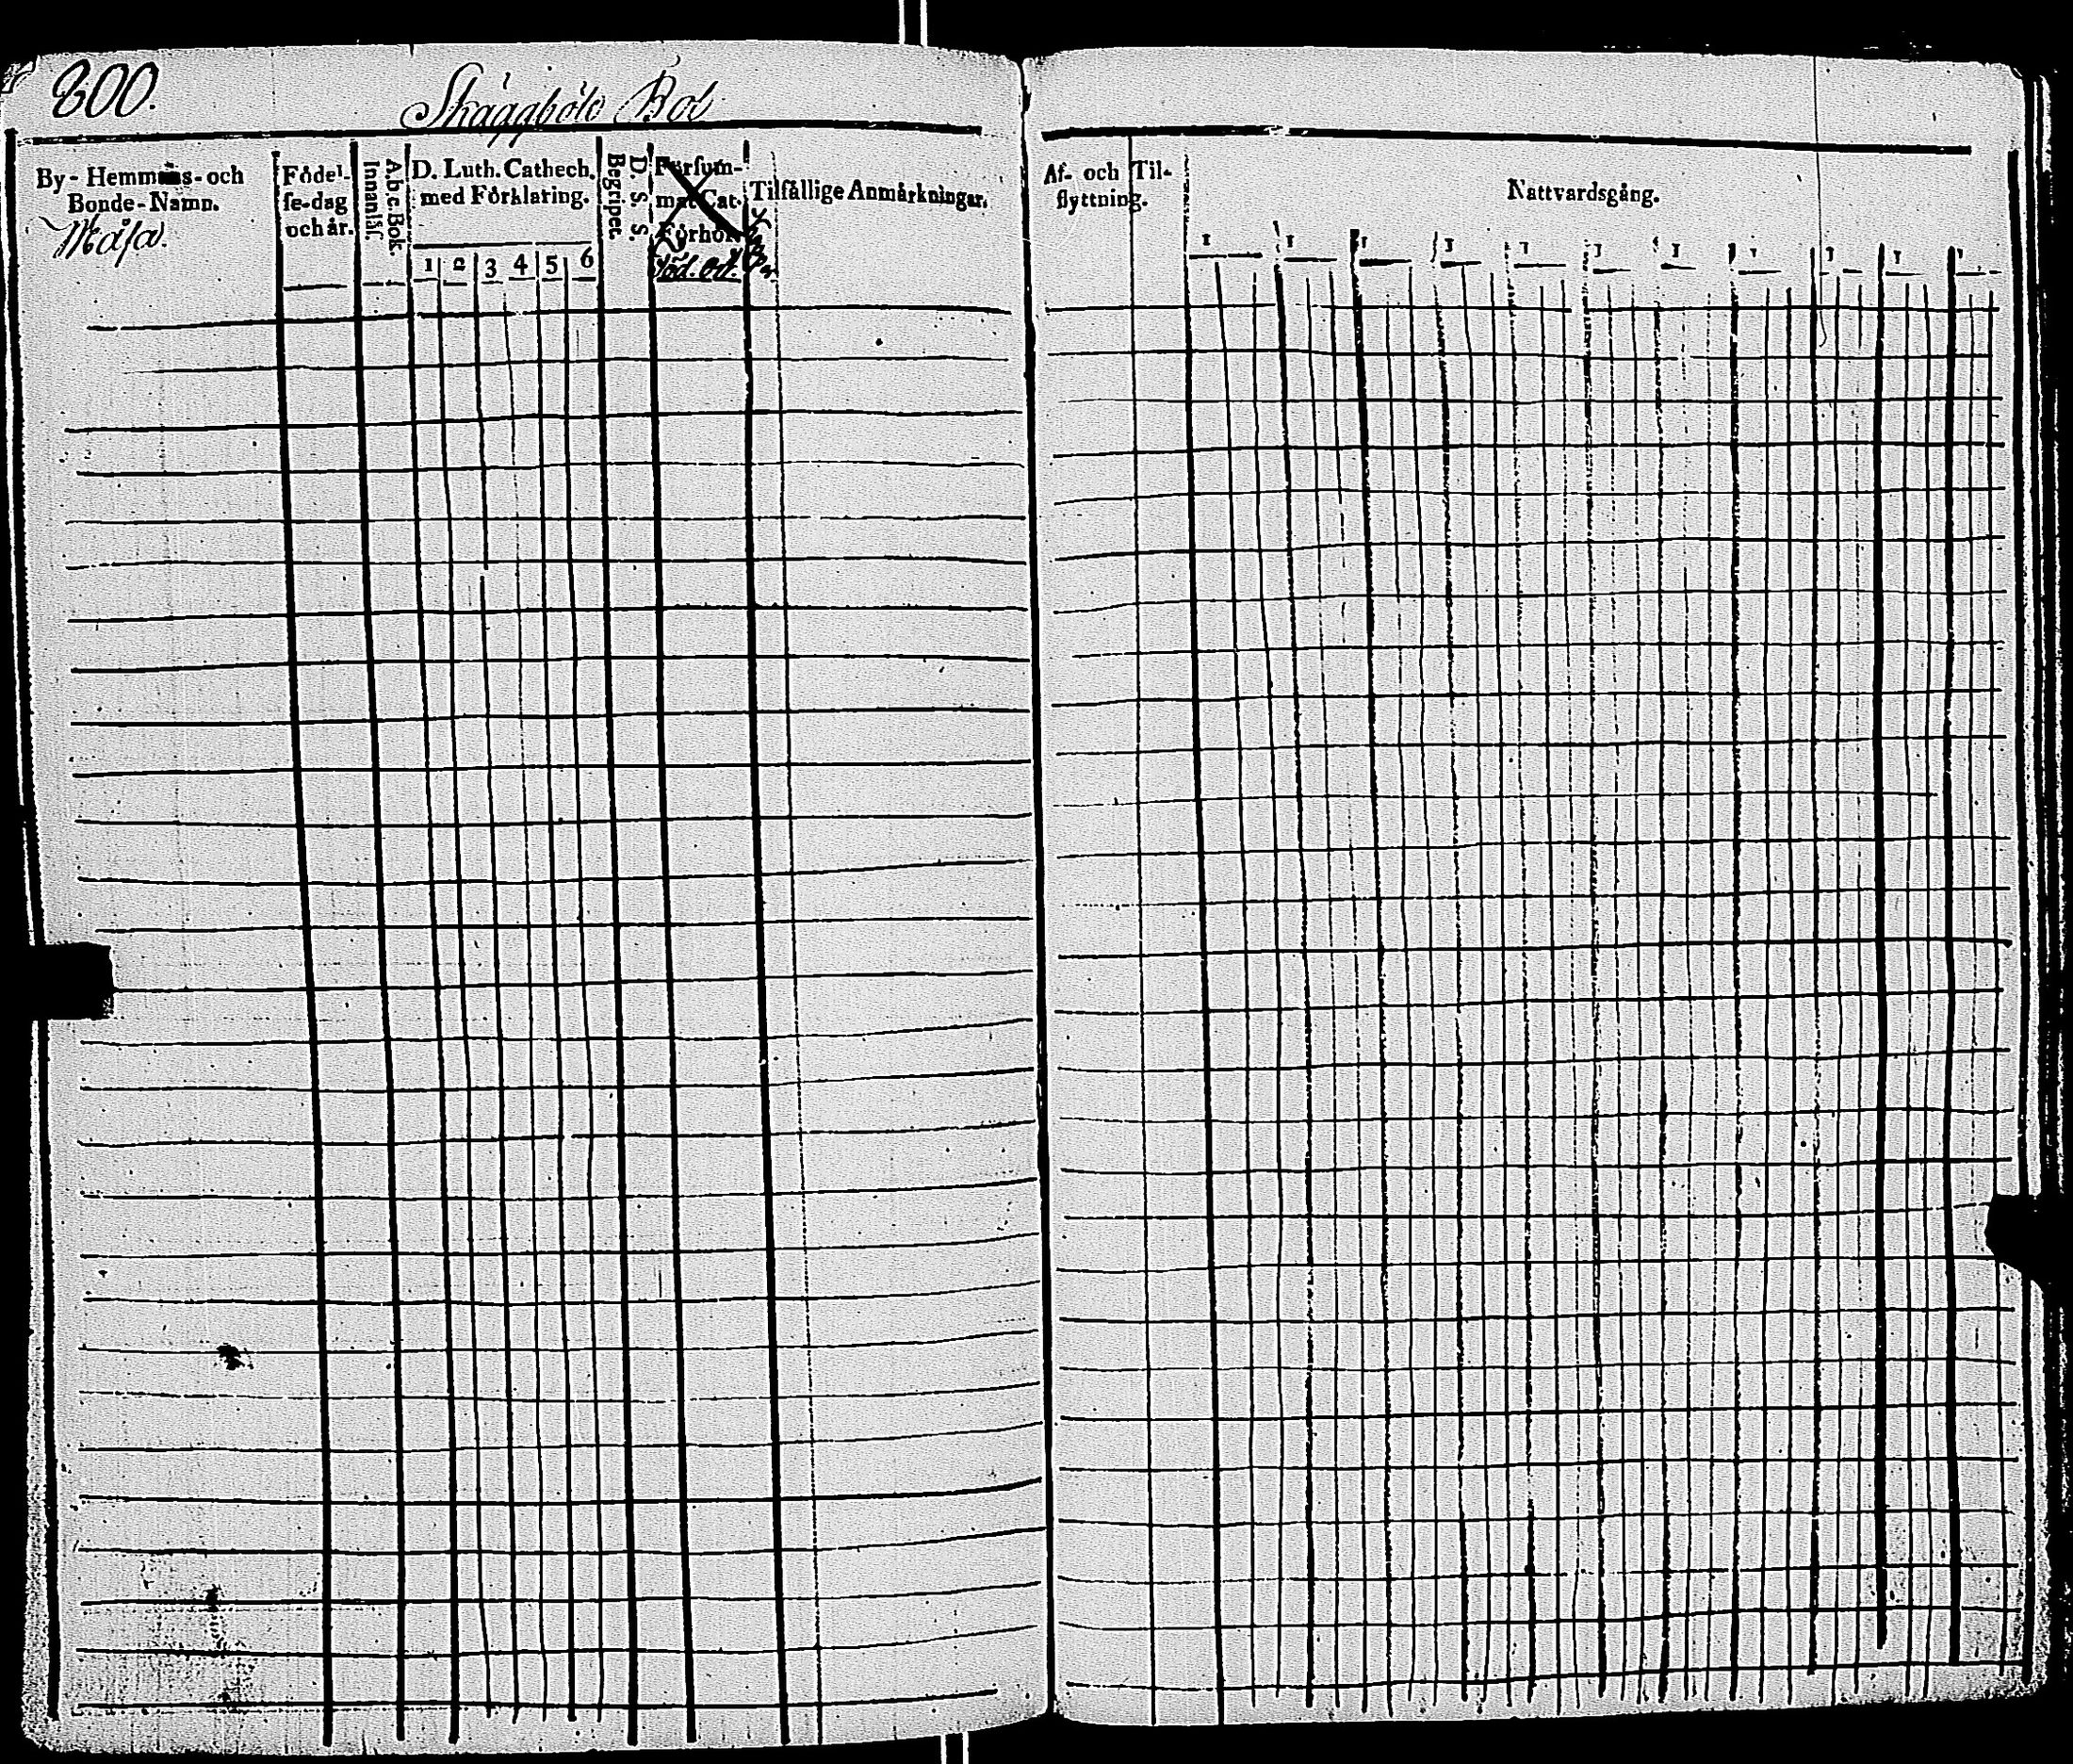 800.
Skäggböle Bol
By-Hemmans-och
Bonde-Namn.
Måsa.
Födel-
se-dag
och år.
A.b.c.Bok.
Innanläs.
D. Luth. Cathech.
med Förklaring.
1 2 3 4 5 6
D. S. S.
Begriper.
Försum-
mat Cat.
Förhör.
Död. Od.
Tilfållige Anmårkningar.
Af- och Til-
flyttning.
Nattvardsgång.
1 1 1 1 1 1 1 1 1 1 1